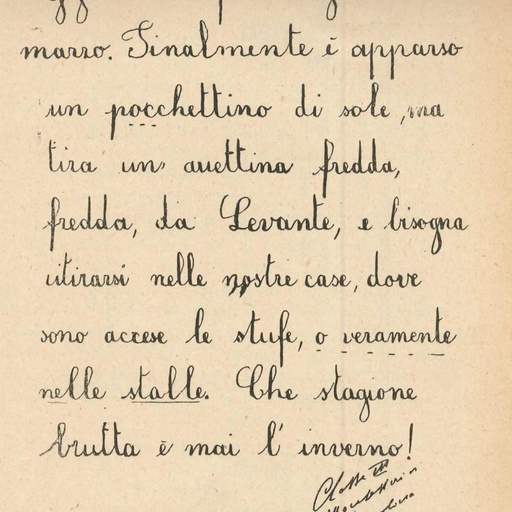 marzo. Finalmente è apparso
un pocchettino di sole, ma
tira un' auettina fredda,
fredda, da Levante, e bisogna
ritirarsi nelle nostre case, dove
sono accese le stufe, o veramente
nelle stalle. Che stagione
brutta è mai l' inverno!
Classe III